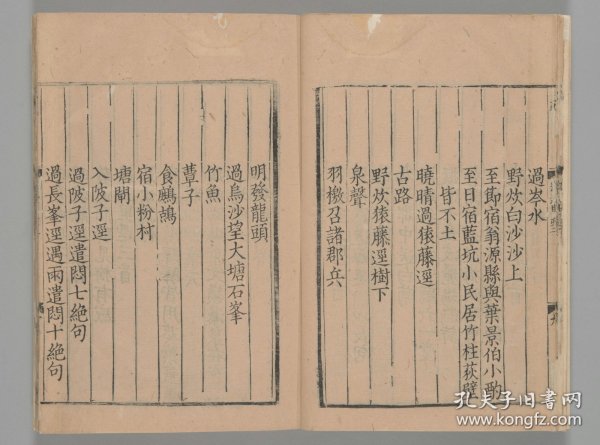 過岑水
野炊白沙沙上
至節宿翁源縣與葉景伯小酌
至日宿藍坑小民居竹柱荻壁
皆不土
曉晴過猿藤逕
古路
野炊猿藤逕樹下
泉聲
羽檄召諸郡兵
明發龍頭
過烏沙望大塘石峯
竹魚
蕈子
食鷓鴣
宿小粉村
塘閘
入陂子逕
過陂子逕遣悶七絶句
過長峯逕遇雨遣悶十絶句
孔夫子旧書网
www.kongfz.com